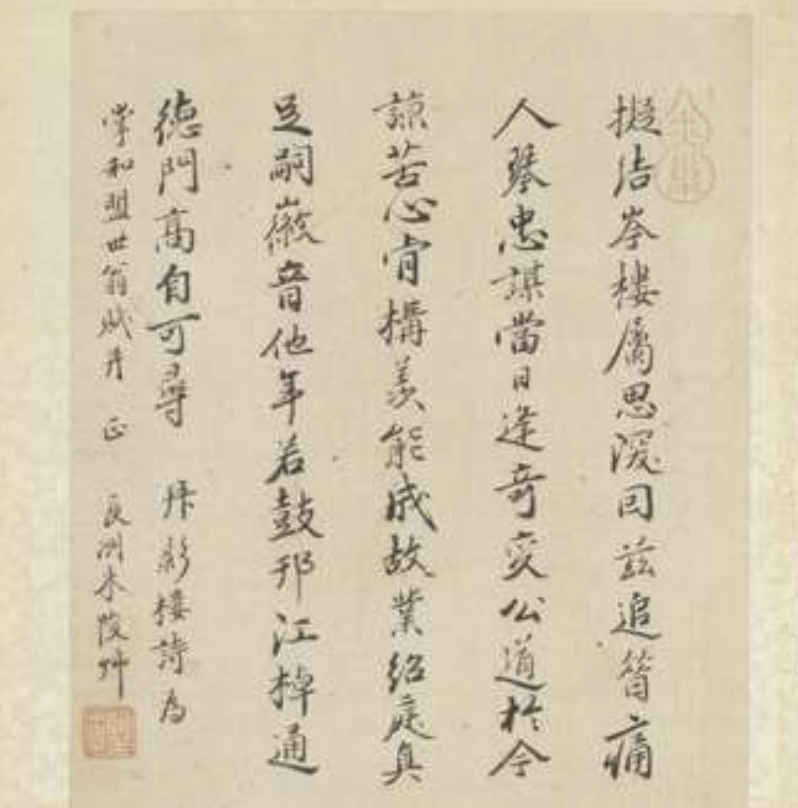 擬結岑樓屬思深因茲追昔痛
人琴忠謀當日逢奇変公道於今
諒苦心肯構羨能成故業紹庭真
足嗣徽音他年若鼓邗江棹通
德門高自可尋 影樓詩為
掌和盟世翁賦并正 長洲